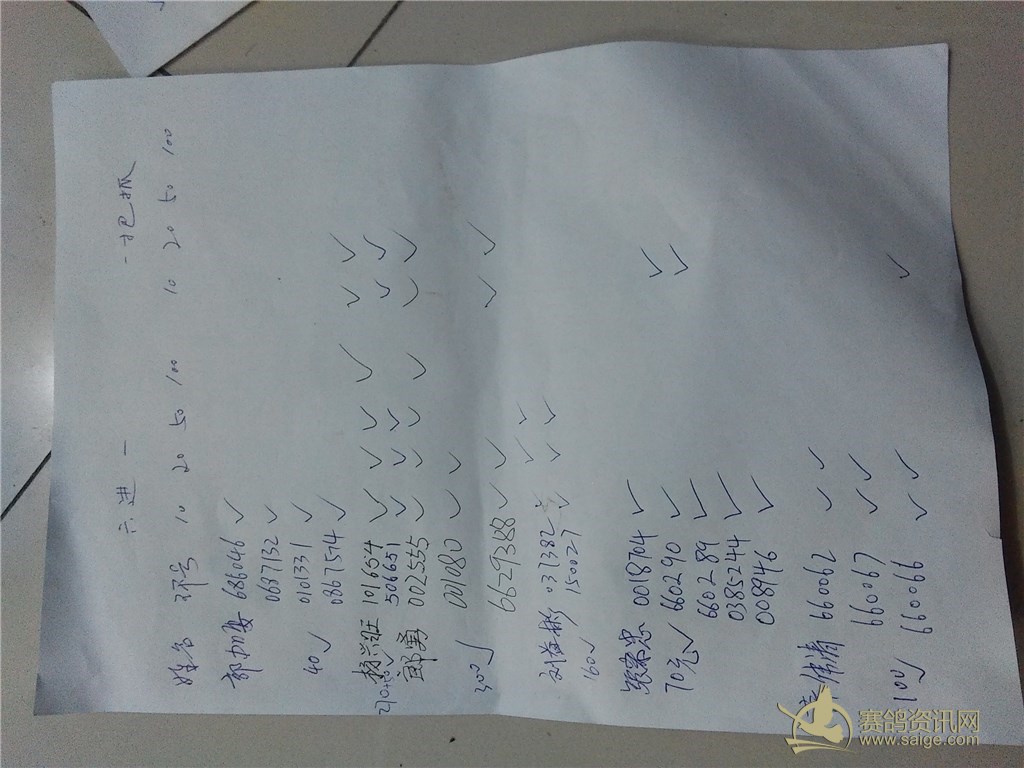 六进一 一把抓
姓名 环号 10 20 50 100 10 20 50 100
686046 ✓
0637132 ✓
0101331 ✓
40 ✓ 0867574 ✓
杨兴旺 101654 ✓ ✓ ✓ ✓ ✓ ✓
506651 ✓ ✓ ✓ ✓ ✓
郎勇 002555 ✓ ✓ ✓ ✓ ✓
001080 ✓ ✓
300 ✓ 6629388 ✓ ✓ ✓ ✓
031382 ✓ ✓
160 ✓ 150027 ✓ ✓ ✓
0018704 ✓ ✓
70元 ✓ 660290 ✓ ✓
660289 ✓
0385244 ✓
008946 ✓
660062 ✓ ✓
660067 ✓ ✓
100 ✓ 660066 ✓ ✓ ✓
赛鸽资讯网
www.saige.com